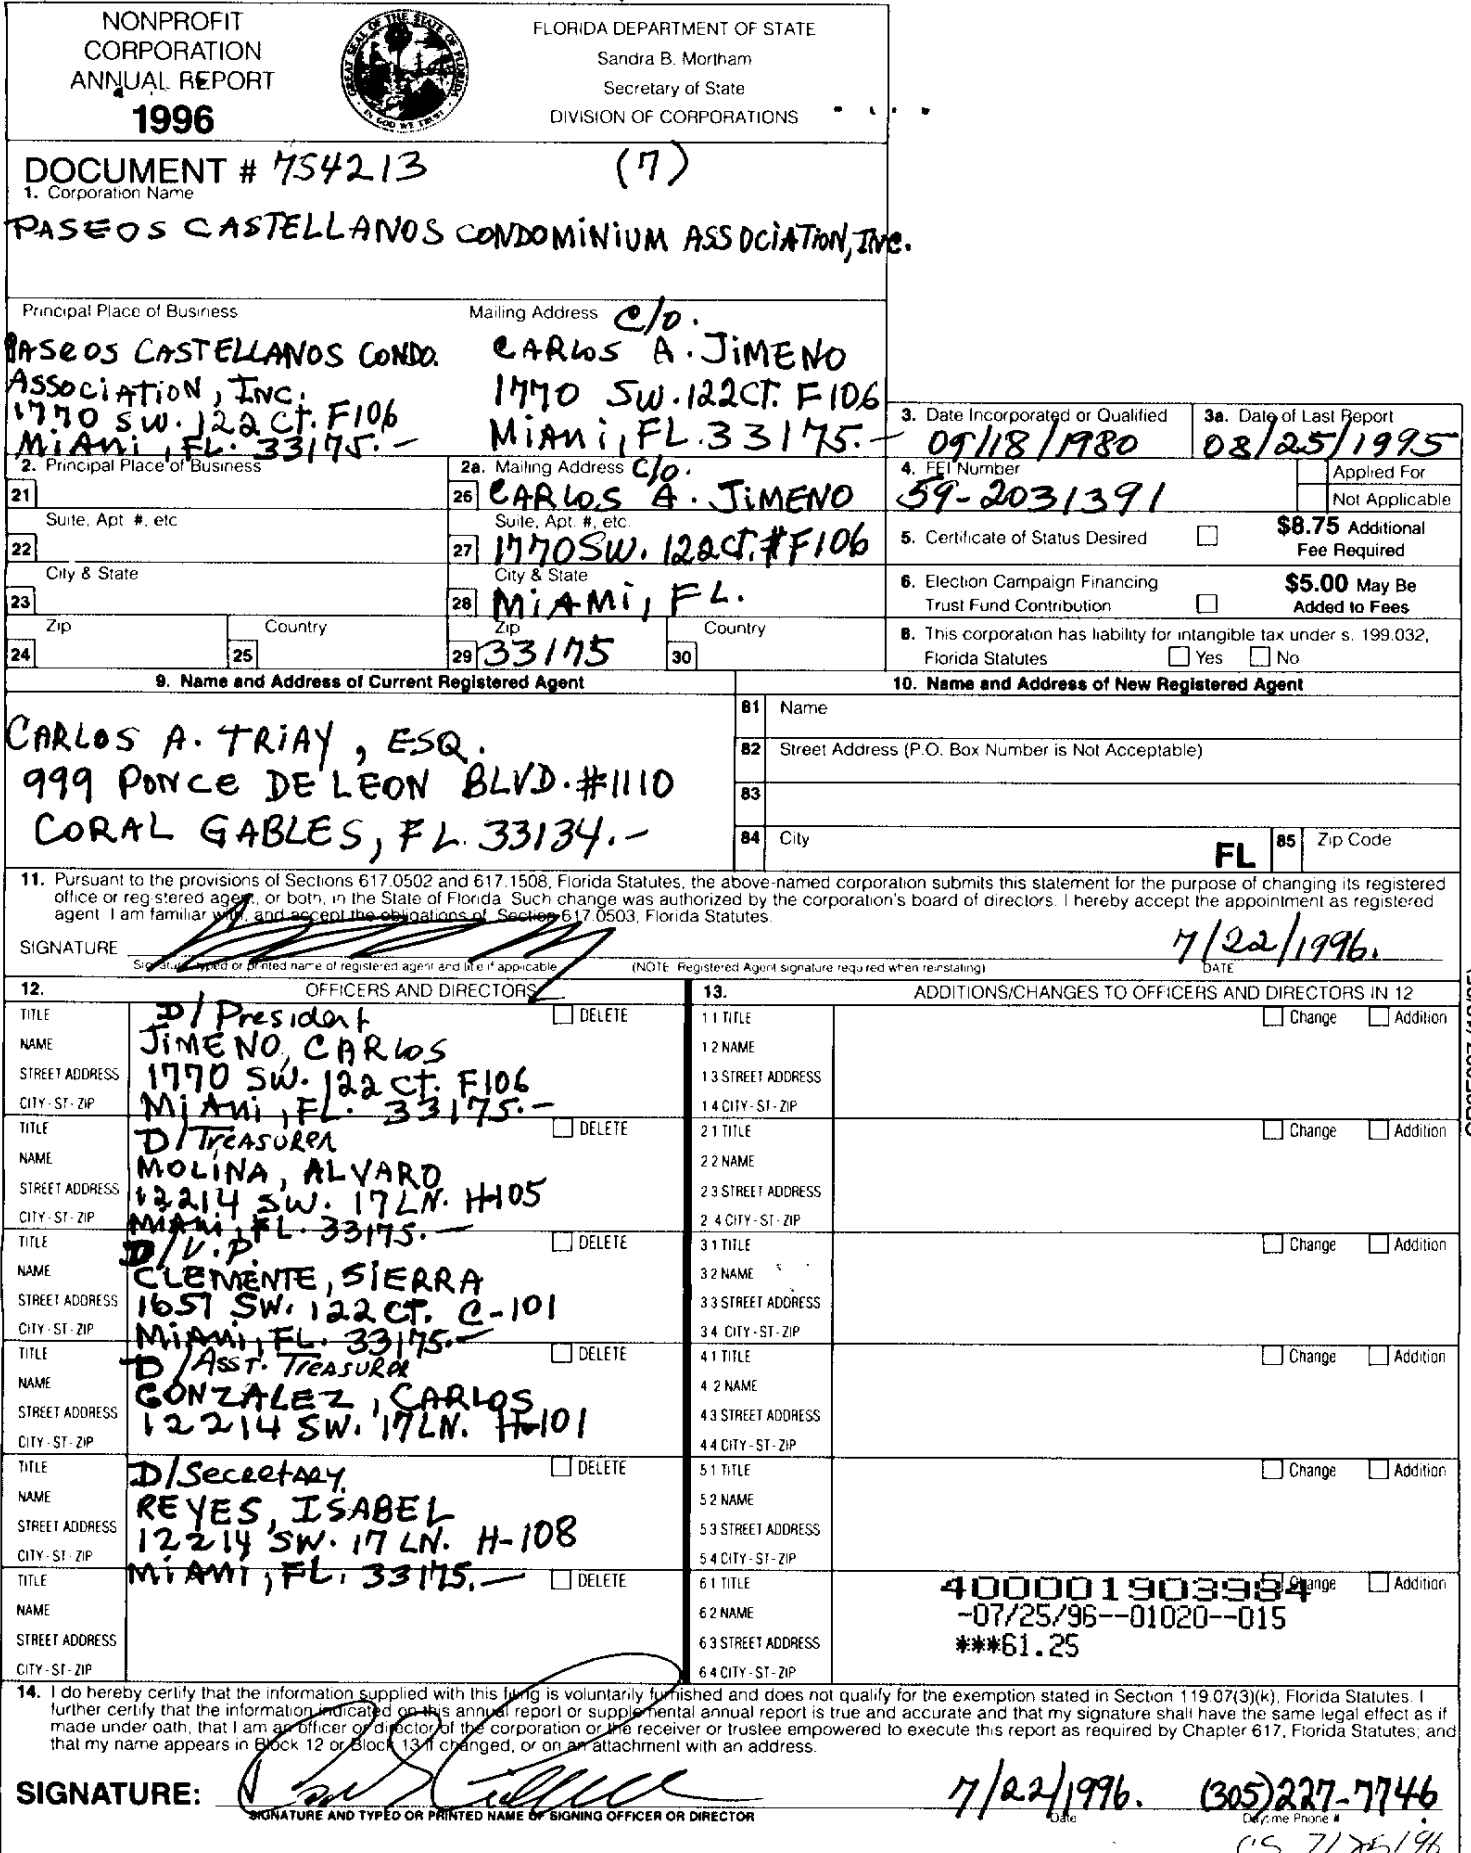 NONPROFIT
CORPORATION
ANNUAL REPORT
1996
GREAT SEAL OF THE STATE OF FLORIDA
IN GOD WE TRUST
FLORIDA DEPARTMENT OF STATE
Sandra B. Mortham
Secretary of State
DIVISION OF CORPORATIONS
DOCUMENT # 754213 (7)
1. Corporation Name
PASEOS CASTELLANOS CONDOMINIUM ASSOCIATION, INC.
Principal Place of Business
PASEOS CASTELLANOS CONDO.
ASSOCIATION, INC.
1770 SW. 122 CT. F106
MiAMi, FL. 33175.-
Mailing Address C/O.
CARLOS A. JIMENO
1770 SW. 122CT. F106
MiAMi, FL. 33175.-
3. Date Incorporated or Qualified
09/18/1980
3a. Date of Last Report
08/25/1995
2. Principal Place of Business
21
2a. Mailing Address C/O.
26 CARLOS A. JIMENO
4. FEI Number
59-2031391
Applied For
Not Applicable
Suite, Apt. #, etc
22
Suite, Apt. #, etc.
27 1770 SW. 122CT. #F106
5. Certificate of Status Desired
$8.75 Additional
Fee Required
City & State
23
City & State
28 MiAMi, FL.
6. Election Campaign Financing
Trust Fund Contribution
$5.00 May Be
Added to Fees
Zip
24
Country
25
Zip
29 33175
Country
30
8. This corporation has liability for intangible tax under s. 199.032,
Florida Statutes Yes No
9. Name and Address of Current Registered Agent
CARLOS A. TRIAY, ESQ.
999 PONCE DE LEON BLVD. #1110
CORAL GABLES, FL. 33134.-
10. Name and Address of New Registered Agent
81 Name
82 Street Address (P.O. Box Number is Not Acceptable)
83
84 City
FL
85 Zip Code
11. Pursuant to the provisions of Sections 617.0502 and 617.1508, Florida Statutes, the above-named corporation submits this statement for the purpose of changing its registered
office or registered agent, or both, in the State of Florida. Such change was authorized by the corporation's board of directors. I hereby accept the appointment as registered
agent. I am familiar with, and accept the obligations of, Section 617.0503, Florida Statutes.
SIGNATURE
7/22/1996.
Signature, typed or printed name of registered agent and title if applicable
(NOTE: Registered Agent signature required when reinstating)
DATE
12. OFFICERS AND DIRECTORS
TITLE D/President DELETE
NAME JIMENO, CARLOS
STREET ADDRESS 1770 SW. 122 CT. F106
CITY-ST-ZIP MiAMi, FL. 33175.-
TITLE D/TREASURER DELETE
NAME MOLINA, ALVARO
STREET ADDRESS 12214 SW. 17 LN. H-105
CITY-ST-ZIP MiAMi, FL. 33175.-
TITLE D/V.P. DELETE
NAME CLEMENTE, SIERRA
STREET ADDRESS 1657 SW. 122 CT. C-101
CITY-ST-ZIP MiAMi, FL. 33175.-
TITLE D/ASST. TREASURER DELETE
NAME GONZALEZ, CARLOS
STREET ADDRESS 12214 SW. 17 LN. H-101
CITY-ST-ZIP
TITLE D/Secretary DELETE
NAME REYES, ISABEL
STREET ADDRESS 12214 SW. 17 LN. H-108
CITY-ST-ZIP MiAMi, FL. 33175.-
TITLE DELETE
NAME
STREET ADDRESS
CITY-ST-ZIP
13. ADDITIONS/CHANGES TO OFFICERS AND DIRECTORS IN 12
1 1 TITLE Change Addition
1 2 NAME
1 3 STREET ADDRESS
1 4 CITY-ST-ZIP
2 1 TITLE Change Addition
2 2 NAME
2 3 STREET ADDRESS
2 4 CITY-ST-ZIP
3 1 TITLE Change Addition
3 2 NAME
3 3 STREET ADDRESS
3 4 CITY-ST-ZIP
4 1 TITLE Change Addition
4 2 NAME
4 3 STREET ADDRESS
4 4 CITY-ST-ZIP
5 1 TITLE Change Addition
5 2 NAME
5 3 STREET ADDRESS
5 4 CITY-ST-ZIP
6 1 TITLE Change Addition
6 2 NAME
6 3 STREET ADDRESS
6 4 CITY-ST-ZIP
400001903984
-07/25/96--01020--015
***61.25
14. I do hereby certify that the information supplied with this filing is voluntarily furnished and does not qualify for the exemption stated in Section 119.07(3)(k), Florida Statutes. I
further certify that the information indicated on this annual report or supplemental annual report is true and accurate and that my signature shall have the same legal effect as if
made under oath, that I am an officer or director of the corporation or the receiver or trustee empowered to execute this report as required by Chapter 617, Florida Statutes; and
that my name appears in Block 12 or Block 13 if changed, or on an attachment with an address.
SIGNATURE:
7/22/1996. (305)227-7746
SIGNATURE AND TYPED OR PRINTED NAME OF SIGNING OFFICER OR DIRECTOR
Date
Daytime Phone #
7/25/96